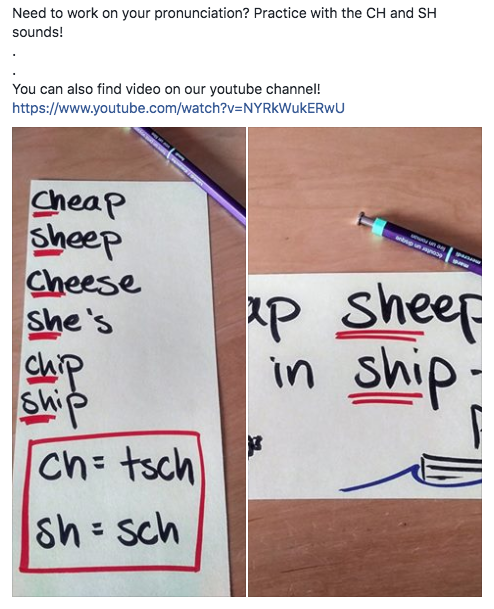 Need to work on your pronunciation? Practice with the CH and SH
sounds!
.
.
You can also find video on our youtube channel!
https://www.youtube.com/watch?v=NYRkWukERwU
cheap
sheep
cheese
she's
chip
ship
ch = tsch
sh = sch
ap sheep
in ship-